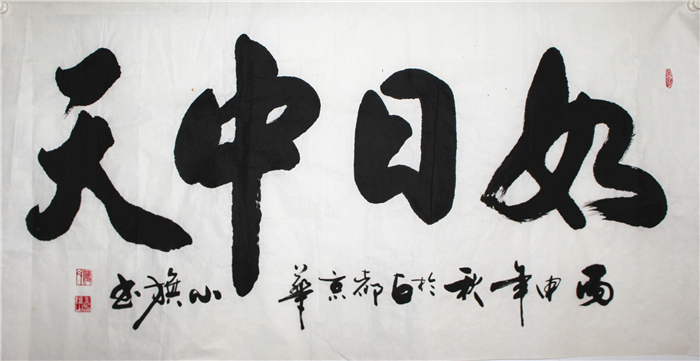 如日中天
丙申年秋於古都京華 小旗书